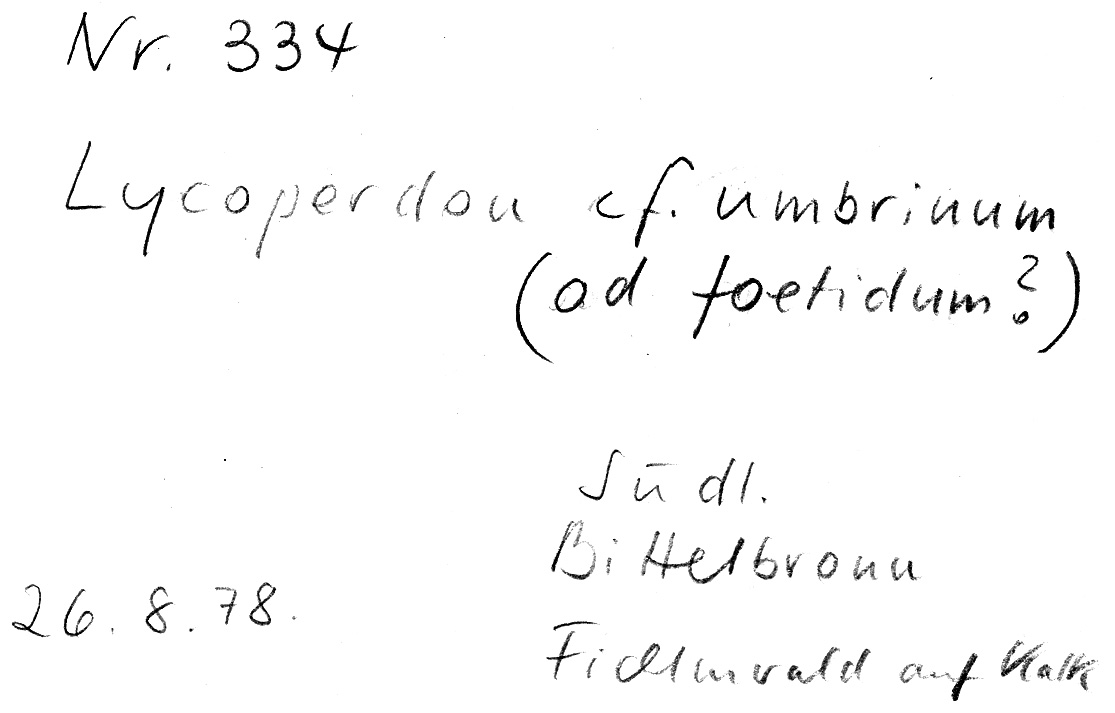 Nr. 334
Lycoperdon cf. umbrinum
(ad foetidum?)
Südl.
Bittelbronn
26.8.78.
Fichtenwald auf Kalk